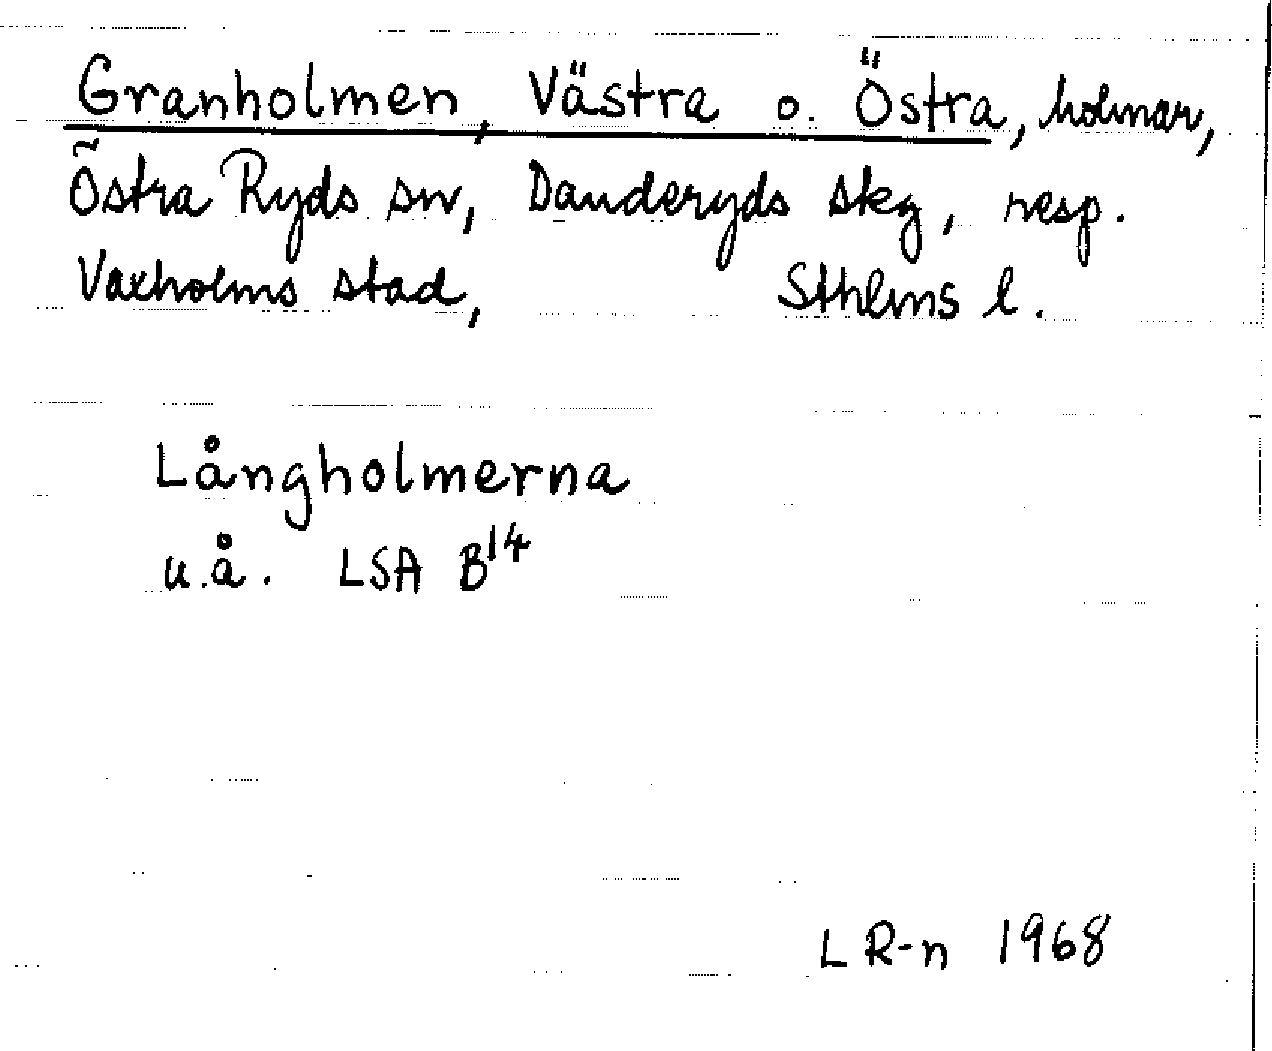 Granholmen, Västra o. Östra, holmar,
Östra Ryds sn, Danderyds skg, resp.
Vaxholms stad, Sthlms l.
Långholmerna
u.å. LSA B14
L R-n 1968